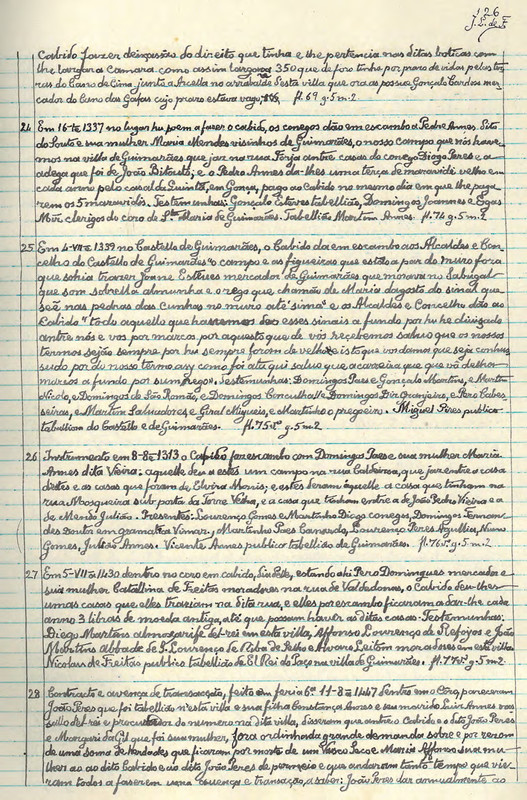 126
J. L. de F.
Cabido fazer deixassão do direito que tinha e lhe pertencia nas ditas boticas com
lhe largar a Camara como assim largou 350 que de foro tinha por prazo de vidas pelos ter
rus do Cano de Cima junto á no arrabalde desta villa que ora as possue Gonçalo Cardoso mer
cador do Cano das Gafas cujo prazo estava vago, fl. 69 g. 5 m. 2
24 Em 16 1337 no lugar hu poem a fazer o cabido, os conegos dão em escambo a Pedro Annes. Sito
do Souto e sua mulher Maria Mendes visinhos de Guimarães, o nosso campo que nós have
mos na villa de Guimarães que jaz na rua Forja antre casas do conego Diogo Peres e a
adega que foi de João Bitouto; e o Pedro Annes da-lhes uma terça de maravidi velho em
cada anno pelo casal da Quintã, em Gonça, pago ao Cabido no mesmo dia em que lhe paga
rem os 5 maravidis. Testemunhas: Gonçalo Esteves tabellião, Domingos Joannes e Egas
Mis. clerigos do coro de S.ta Maria de Guimarães. Tabellião Martim Annes. fl. 74 g. 5 m. 2
25 Em 4-VII-1339 no Castello de Guimarães, o Cabido da em escambo aos Alcaldes e Con
celho do Castello de Guimarães "o campo e as figueiras que estão a par do muro fora
que sohia trazer Joane Esteves mercador de Guimarães que morava no Sabugal
que som sobrella almunha e o rego que chamão de Maria da gosto do sinal que
seé nas pedras das cunhas no muro até sima" e os Alcaldes e Concelho dão ao
Cabido "todo aquello que havemos des esses sinais a fundo por hu he divizado
antre nós e vos por marcos por aquesto que de vós recebemos salvo que os nossos
termos sejão sempre por hu sempre foram de velho e isto que vos damos que seja conhus
sudo por do nosso termo assy como foi ata qui salvo que a carreira que que vá de lhon
marcos a fundo por sum prego". Testemunhas: Domingos Paes e Gonçalo Martins, e Martim
Nicolo, e Domingos de São Romão, e Domingos Conculhalhe, Domingos Dis Granjeiro, e Pero Cabes
seiras, e Martim Salvadores e Giral Migueis, e Martinho o pregoeiro. Miguel Pires publico
tabellião do Castello e de Guimarães. fl. 75 g. 5 m. 2
26 Instrumento em 8-8-1313 o Cabido faz escambo com Domingos Paes e sua mulher Maria
Annes dita Vieira: aquelle deu a estes um campo na rua Caldeiroa, que jaz entre a casa
destes e as casas que foram de Elvira Monis; e estes deram áquelle a casa que tinham na
rua Mosqueira sub posta da Torre Velha, e a casa que tinham entre a de João Pedro Vieira e a
de Mendo Julião. Presentes: Lourenço Gomes e Martinho Diogo conegos, Domingos Fernan
des Doutor em gramatica Vimar., Martinho Paes Canardo, Lourenço Peres Agullia, Nuno
Gomes, Julião Annes. Vicente Annes publico tabellião de Guimarães. fl. 76 g. 5 m. 2
27 Em 5-VII-1430 dentro no coro em cabido, estando ahi Pero Domingues mercador e
sua mulher Catallina de Freitas moradores na rua de Valdedonas, o Cabido deu-lhes
umas casas que elles traziam na dita rua, e elles por escambo ficaram a dar-lhe cada
anno 3 libras de moeda antiga, até que possam haver as ditas casas. Testemunhas:
Diogo Martins almoxarife del-rei em esta villa, Affonso Lourenço de Refojos e João
Martins Abbade de S. Lourenço de Riba de Selho e Alvaro Leitom moradores em esta villa
Nicolaus de Freitas publico tabellião de El Rei do Paço na villa de Guimarães. fl. 77 g. 5 m. 2
28 Contracto e avença de transacção, feito em feria 6ª 11-8-1447 dentro em o Coro, pareceram
João Peres que foi tabellião n'esta villa e sua filha Constança Anes e seu marido Luis Annes vas
sallo del-rei e procurador do numero na dita villa, disseram que antre o Cabido e o dito João Peres
e Margarida Gil que foi sua mulher, fora ordinhada grande demanda sobre e por rezom
de uma soma de herdades que ficaram por morte de um Vasco Paes e Maria Affonso sua mu
lher ao ao dito Cabido e ao dito João Peres de permeio e que andaram tanto tempo que vie
ram todos a fazerem uma avença e transação, a saber: João Peres dar annualmente ao